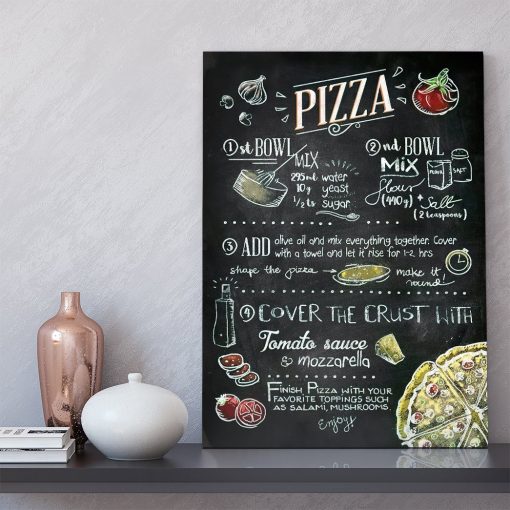 PIZZA
1st BOWL
MIX
295ml water
10g yeast
1/2 ts sugar
2nd BOWL
MIX
FLOUR
SALT
flour
(440g) + Salt
(2 teaspoons)
3 ADD olive oil and mix everything together. Cover
with a towel and let it rise for 1-2 hrs
shape the pizza → make it
round!
4 COVER THE CRUST WITH
Tomato sauce
& mozzarella
FINISH PIZZA WITH YOUR
FAVORITE TOPPINGS SUCH
AS SALAMI, MUSHROOMS.
Enjoy!